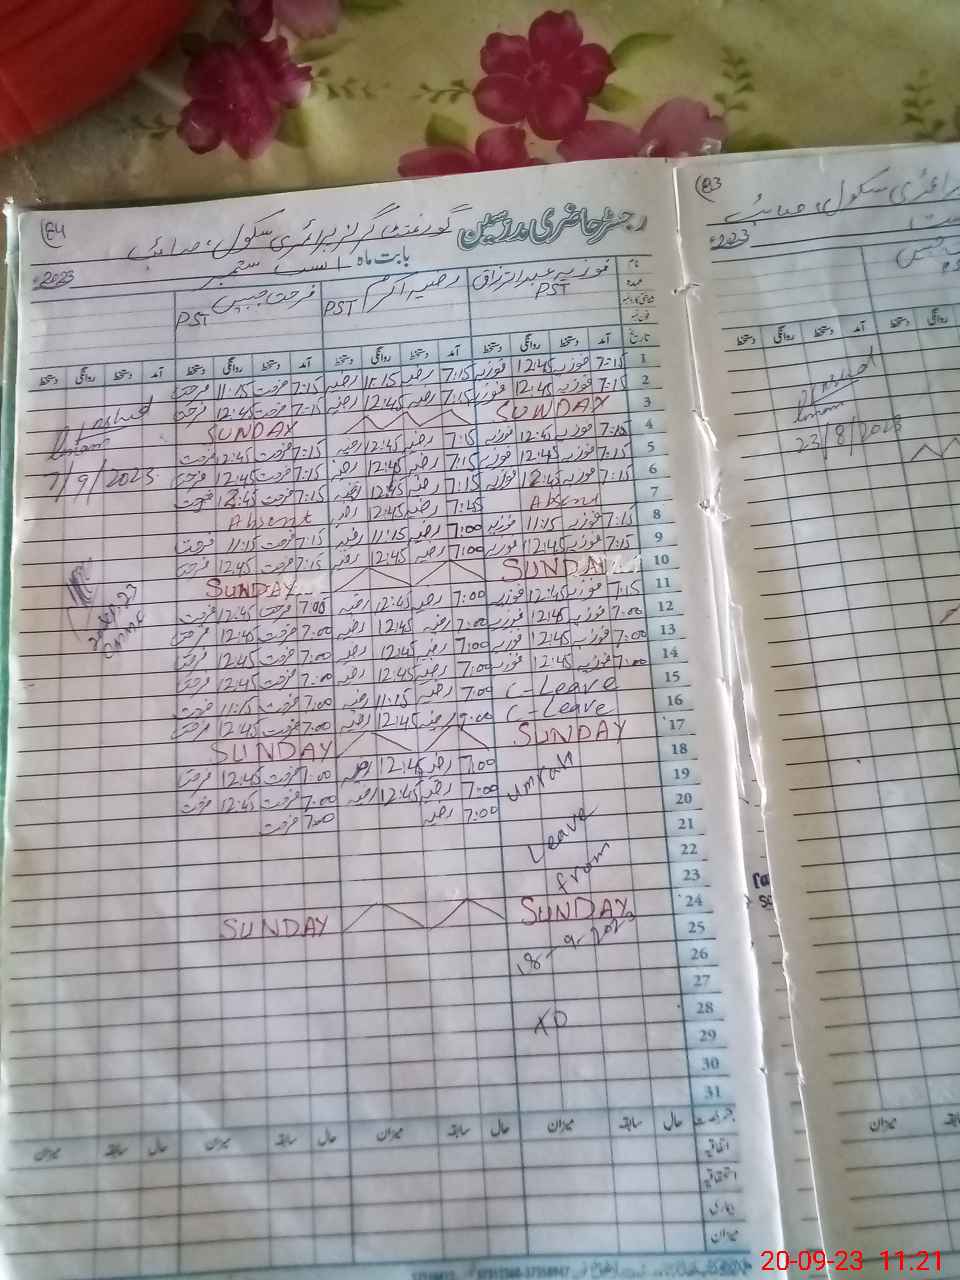 84
رجسٹر حاضری مدرسین گورنمنٹ گرلز پرائمری سکول، صابے
بابت ماہ ستمبر 2023ء
نام فوزیہ عبدالرزاق رضیہ اکرم فرحت جبیں
عہدہ PST PST PST
تاریخ آمد دستخط روانگی دستخط آمد دستخط روانگی دستخط آمد دستخط روانگی دستخط آمد دستخط روانگی دستخط
1 7:15 فوزیہ 12:45 فوزیہ 7:15 رضیہ 11:15 رضیہ 7:15 فرحت 11:15 فرحت
2 7:15 فوزیہ 12:45 فوزیہ 7:15 رضیہ 12:45 رضیہ 7:15 فرحت 12:45 فرحت
3 SUNDAY SUNDAY
4 7:15 فوزیہ 12:45 فوزیہ 7:15 رضیہ 12:45 رضیہ 7:15 فرحت 12:45 فرحت
5 7:15 فوزیہ 12:45 فوزیہ 7:15 رضیہ 12:45 رضیہ 7:15 فرحت 12:45 فرحت
6 7:15 فوزیہ 12:45 فوزیہ 7:15 رضیہ 12:45 رضیہ 7:15 فرحت 12:45 فرحت
7 Absent 7:45 رضیہ 12:45 رضیہ Absent
8 7:15 فوزیہ 11:15 فوزیہ 7:00 رضیہ 11:15 رضیہ 7:15 فرحت 11:15 فرحت
9 7:15 فوزیہ 12:45 فوزیہ 7:00 رضیہ 12:45 رضیہ 7:15 فرحت 12:45 فرحت
10 SUNDAY SUNDAY
11 7:15 فوزیہ 12:45 فوزیہ 7:00 رضیہ 12:45 رضیہ 7:00 فرحت 12:45 فرحت
12 7:00 فوزیہ 12:45 فوزیہ 7:00 رضیہ 12:45 رضیہ 7:00 فرحت 12:45 فرحت
13 7:00 فوزیہ 12:45 فوزیہ 7:00 رضیہ 12:45 رضیہ 7:00 فرحت 12:45 فرحت
14 7:00 فوزیہ 12:45 فوزیہ 7:00 رضیہ 12:45 رضیہ 7:00 فرحت 12:45 فرحت
15 C-Leave 7:00 رضیہ 11:15 رضیہ 7:00 فرحت 11:15 فرحت
16 C-Leave 7:00 رضیہ 12:45 رضیہ 7:00 فرحت 12:45 فرحت
17 SUNDAY SUNDAY
18 7:00 رضیہ 12:45 رضیہ 7:00 فرحت 12:45 فرحت
19 umrah 7:00 رضیہ 12:45 رضیہ 7:00 فرحت 12:45 فرحت
20 7:00 رضیہ 7:00 فرحت
21 Leave
22
23 from
24 SUNDAY SUNDAY
25 18-9-2023
26
27
28 TO
29
30
31
7/9/2023
حال سابقہ میزان حال سابقہ میزان حال سابقہ میزان
اتفاقیہ
استحقاقیہ
بیماری
میزان
83
پرائمری سکول، صابے
2023ء
PS
آمد دستخط روانگی دستخط
23/8/2023
میزان
20-09-23 11.21